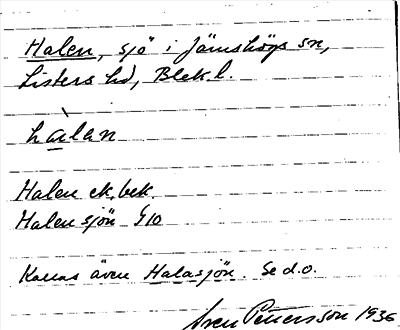 Halen, sjö i Jämshögs sn,
Listers hd, Blek. l.
hàlan
Halen ek. bek.
Halen sjön G10
Kallas även Halasjön. Se d.o.
Sven Pettersson 1936